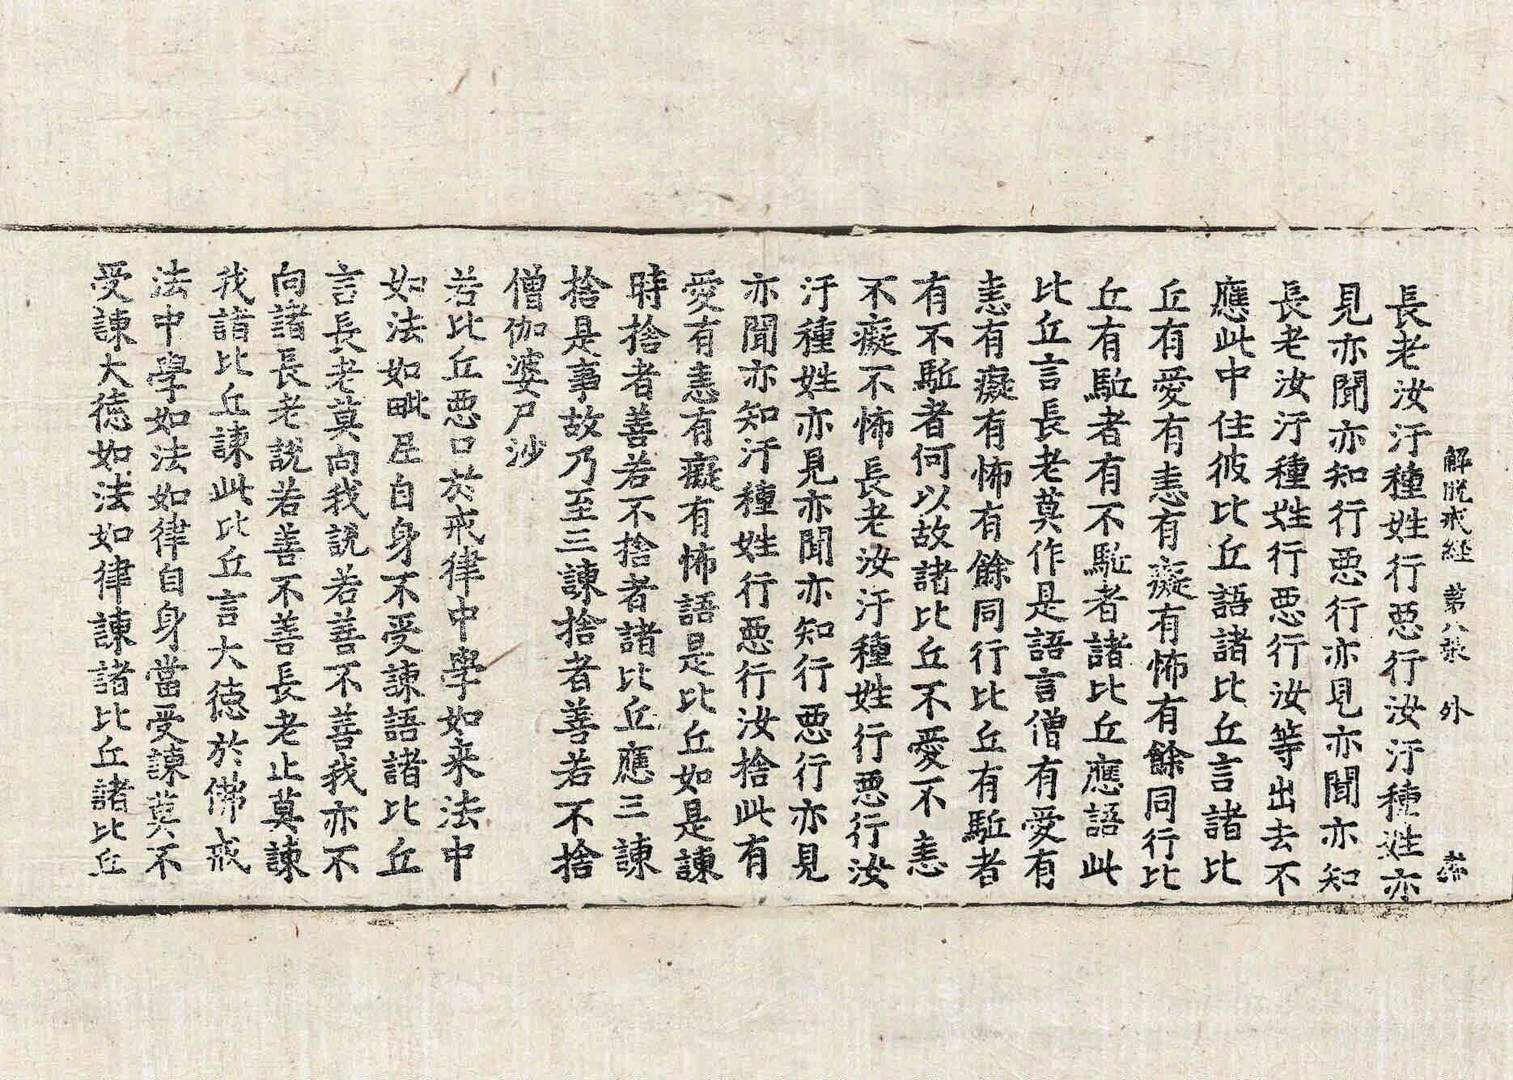 解脫戒經 第八張 外
長老汝汙種姓行惡行汝汙種姓亦
見亦聞亦知行惡行亦見亦聞亦知
長老汝汙種姓行惡行汝等出去不
應此中住彼比丘語諸比丘言諸比
丘有愛有恚有癡有怖有餘同行比
丘有駈者有不駈者諸比丘應語此
比丘言長老莫作是語言僧有愛有
恚有癡有怖有餘同行比丘有駈者
有不駈者何以故諸比丘不愛不恚
不癡不怖長老汝汙種姓行惡行汝
汙種姓亦見亦聞亦知行惡行亦見
亦聞亦知汙種姓行惡行汝捨此有
愛有恚有癡有怖語是比丘如是諫
時捨者善若不捨者諸比丘應三諫
捨是事故乃至三諫捨者善若不捨
僧伽婆尸沙
若比丘惡口於戒律中學如来法中
如法如毗尼自身不受諫語諸比丘
言長老莫向我說若善不善我亦不
向諸長老說若善不善長老止莫諫
我諸比丘諫此比丘言大德於佛戒
法中學如法如律自身當受諫莫不
受諫大德如法如律諫諸比丘諸比丘